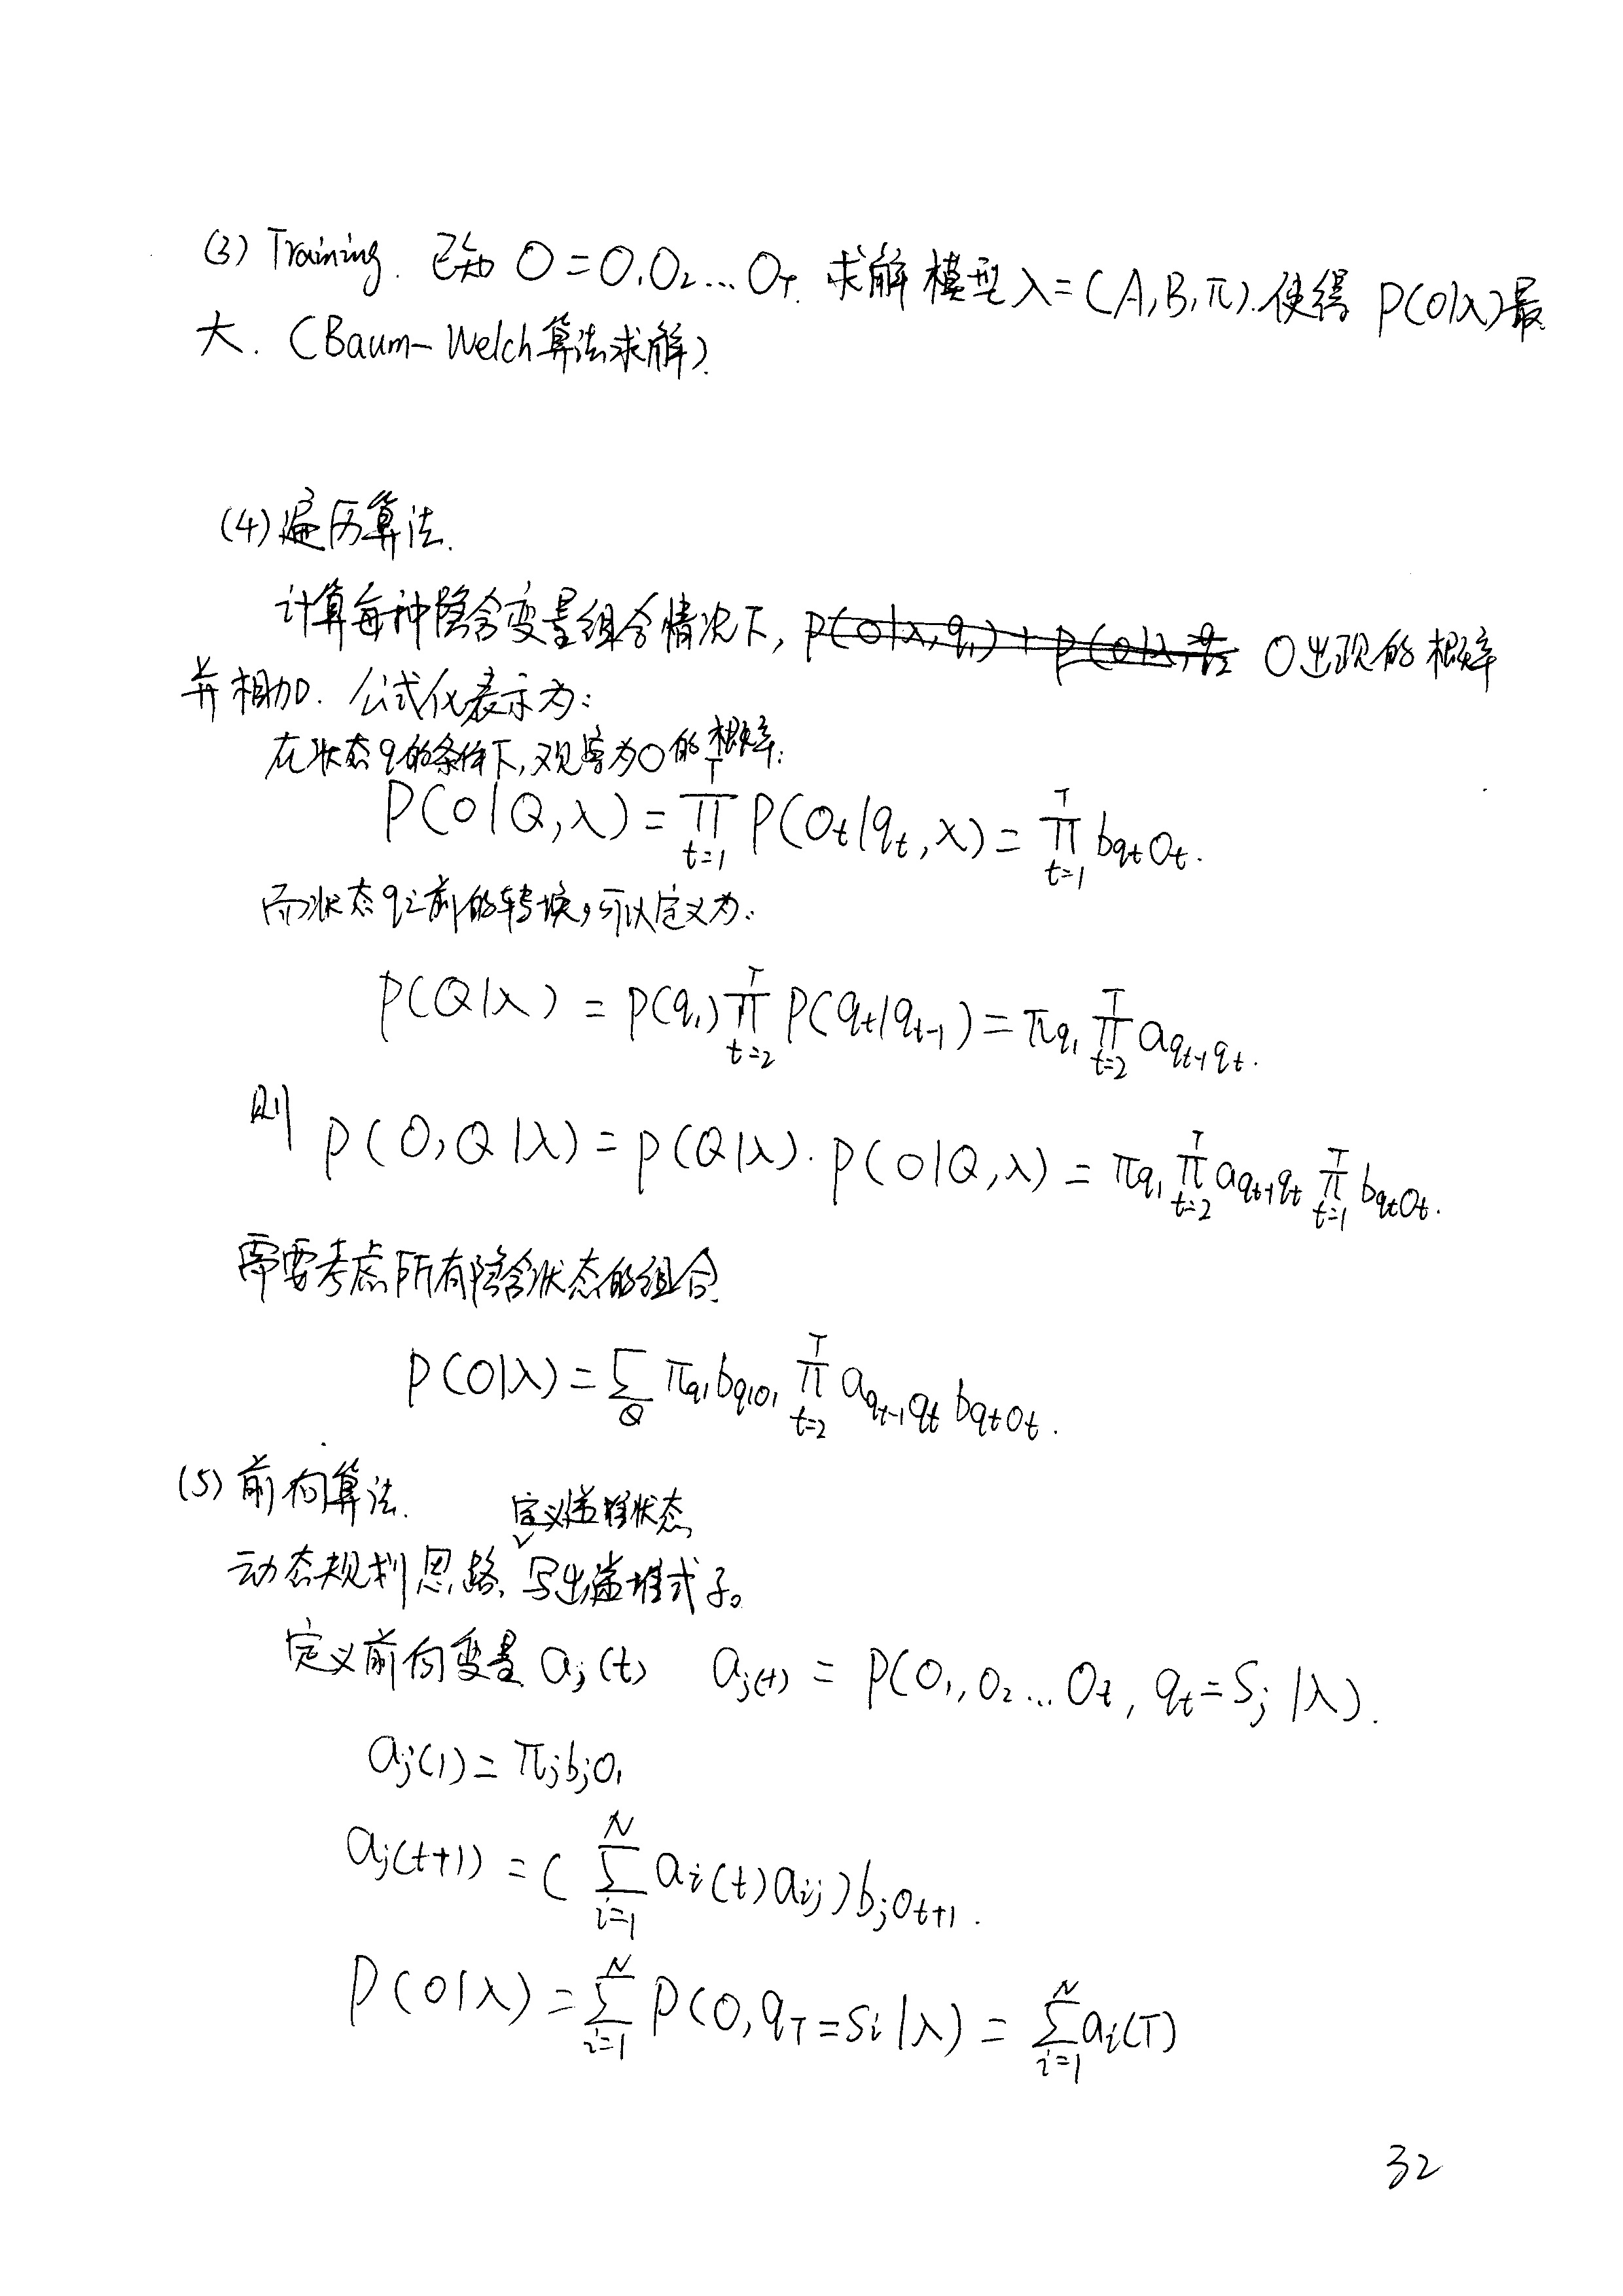 (3) Training. 已知 O=O₁O₂...O_T. 求解模型λ=(A,B,π).使得 P(O|λ)最
大. (Baum-Welch算法求解).
(4) 遍历算法.
计算每种隐含变量组合情况下, P(O|λ,q₁)+P(O|λ,q₂ O出现的概率
并相加. 公式化表示为:
在状态q的条件下,观察为O的概率:
P(O|Q,λ)=∏_{t=1}^{T} P(O_t|q_t,λ)=∏_{t=1}^{T} b_{q_t O_t}.
而状态q之前的转换,可以定义为:
P(Q|λ)=P(q₁)∏_{t=2}^{T} P(q_t|q_{t-1})=π_{q₁}∏_{t=2}^{T} a_{q_{t-1}q_t}.
则 P(O,Q|λ)=P(Q|λ)·P(O|Q,λ)=π_{q₁}∏_{t=2}^{T} a_{q_{t-1}q_t}∏_{t=1}^{T} b_{q_t O_t}.
需要考虑所有隐含状态的组合.
P(O|λ)=∑_Q π_{q₁}b_{q₁O₁}∏_{t=2}^{T} a_{q_{t-1}q_t}b_{q_t O_t}.
(5) 前向算法.
定义递推状态,
动态规划思路, 写出递推式子。
定义前向变量 a_j(t) a_j(t)=P(O₁,O₂...O_t, q_t=S_j|λ).
a_j(1)=π_j b_{jO₁}
a_j(t+1)=(∑_{i=1}^{N} a_i(t)a_{ij})b_{jO_{t+1}}.
P(O|λ)=∑_{i=1}^{N} P(O,q_T=S_i|λ)=∑_{i=1}^{N} a_i(T)
32